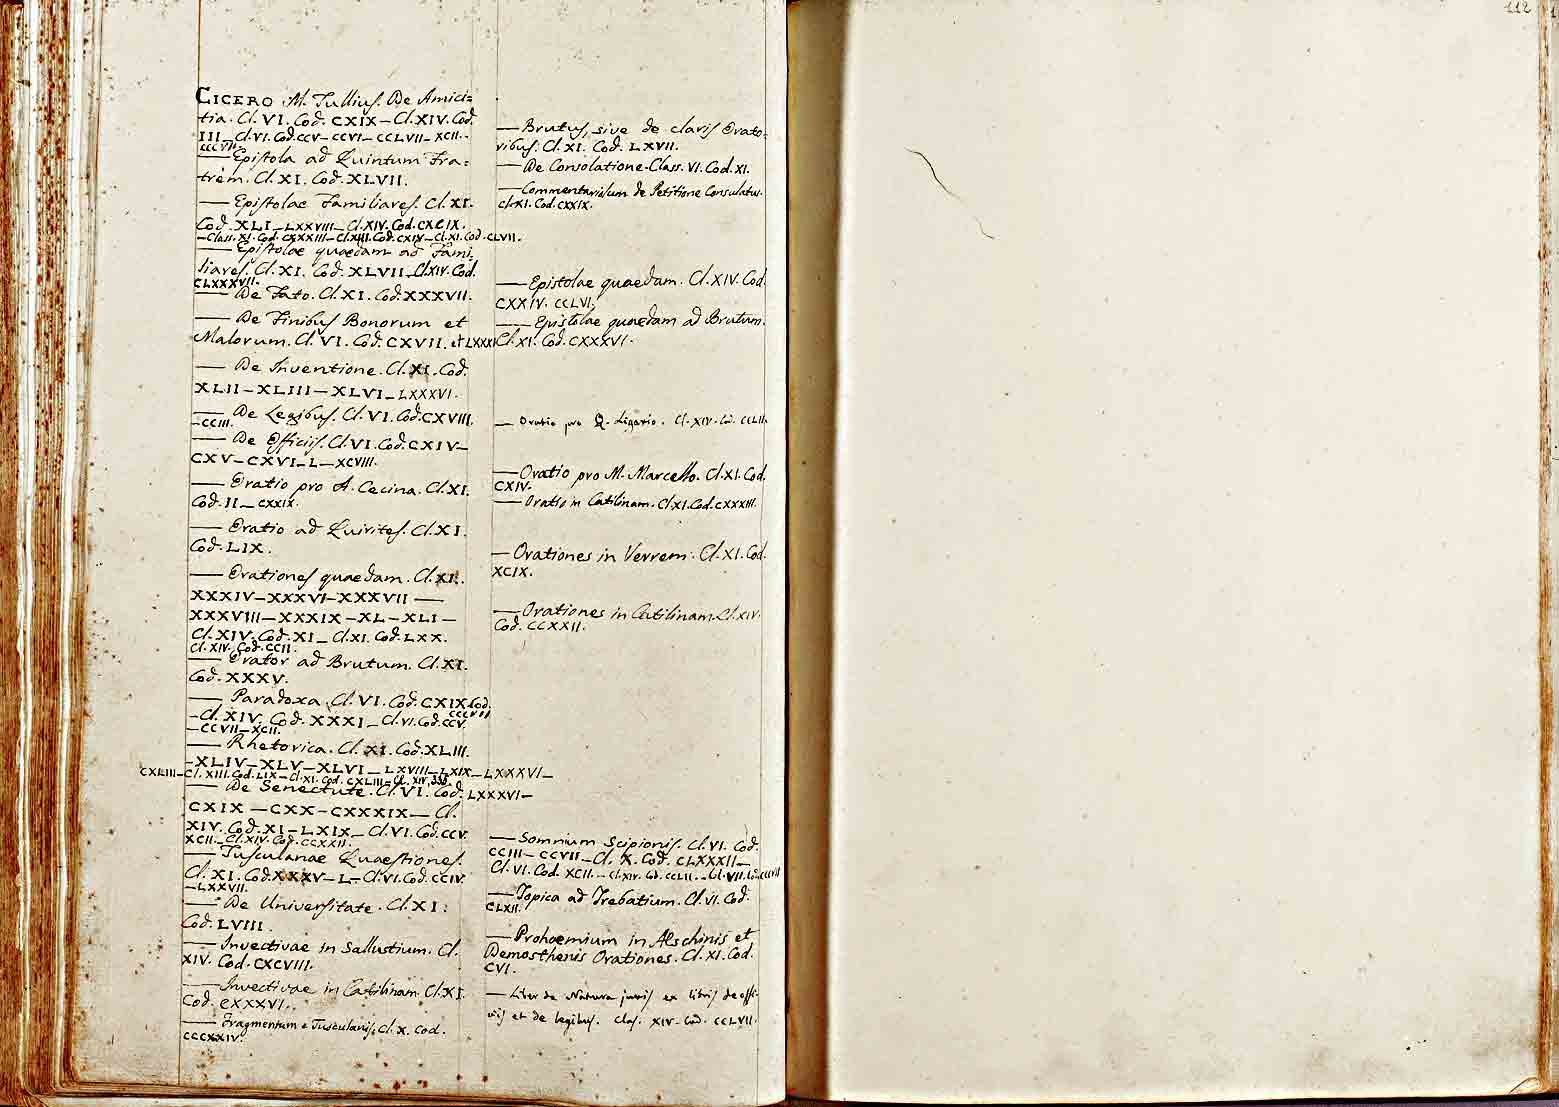 CICERO M. Tullius. De Amici=
tia. Cl. VI. Cod. CXIX — Cl. XIV. Cod.
III — Cl. VI. Cod. CCV — CCVI — CCLVII — XCII.
CCCVII.
— Epistola ad Quintum Fra=
trem. Cl. XI. Cod. XLVII.
— Epistolae Familiares. Cl. XI.
Cod. XLI — LXXVIII — Cl. XIV. Cod. CXCIX.
— Class. XI. Cod. CXXXIII — Cl. XIII. Cod. CXIV — Cl. XI. Cod. CLVII.
— Epistolae quaedam ad Fami
liares. Cl. XI. Cod. XLVII — Cl. XIV. Cod.
CLXXXVII.
— De Fato. Cl. XI. Cod. XXXVII.
— De Finibus Bonorum et
Malorum. Cl. VI. Cod. CXVII. et LXXXI
— De Inventione. Cl. XI. Cod.
XLII — XLIII — XLVI — LXXXVI.
— De Legibus. Cl. VI. Cod. CXVIII.
— CCIII.
— De Officis. Cl. VI. Cod. CXIV —
CXV — CXVI — L — XCVIII.
— Oratio pro A. Cecina. Cl. XI.
Cod. II — CXXIX.
— Oratio ad Quirites. Cl. XI.
Cod. LIX.
— Orationes quaedam. Cl. XI.
XXXIV — XXXVI — XXXVII —
XXXVIII — XXXIX — XL — XLI —
Cl. XIV. Cod. XI — Cl. XI. Cod. LXX.
Cl. XIV. Cod. CCII.
— Orator ad Brutum. Cl. XI.
Cod. XXXV.
— Paradoxa. Cl. VI. Cod. CXIX. Cod.
CCCVII
— Cl. XIV. Cod. XXXI — Cl. VI. Cod. CCV.
— CCVII — XCII.
— Rhetorica. Cl. XI. Cod. XLIII.
— XLIV — XLV — XLVI — LXVIII — LXIX — LXXXVI —
CXLIII — Cl. XIII. Cod. LIX — Cl. XI. Cod. CXLIII — Cl. XIV.
— De Senectute. Cl. VI. Cod. LXXXVI —
CXIX — CXX — CXXXIX — Cl.
XIV. Cod. XI — LXIX — Cl. VI. Cod. CCV.
XCII — Cl. XIV. Cod. CCXXII.
— Tusculanae Quaestiones.
Cl. XI. Cod. XXXV — L — Cl. VI. Cod. CCIV.
— LXXVII.
— De Universitate. Cl. XI:
Cod. LVIII.
— Invectivae in Sallustium. Cl.
XIV. Cod. CXCVIII.
— Invectivae in Catilinam. Cl. XI.
Cod. CXXXVI.
— Fragmentum e Tusculanis, Cl. X. Cod.
CCCXXIV.
— Brutus, sive de claris Orato=
ribus. Cl. XI. Cod. LXVII.
— De Consolatione. Class. VI. Cod. XI.
— Commentariolum de Petitione Consulatus.
Cl. XI. Cod. CXXIX.
— Epistolae quaedam. Cl. XIV. Cod.
CXXIV. CCLVI.
— Epistolae quaedam ad Brutum.
Cl. XI. Cod. CXXXVI.
— Oratio pro Q. Ligario. Cl. XIV. Cod. CCLII.
— Oratio pro M. Marcello. Cl. XI. Cod.
CXIV.
— Oratio in Catilinam. Cl. XI. Cod. CXXXIII.
— Orationes in Verrem. Cl. XI. Cod.
XCIX.
— Orationes in Catilinam. Cl. XIV.
Cod. CCXXII.
— Somnium Scipionis. Cl. VI. Cod.
CCIII — CCVII — Cl. X. Cod. CLXXXII —
Cl. VI. Cod. XCII. — Cl. XIV. Cod. CCLII. — Cl. VII. Cod. CCCVII
— Topica ad Trebatium. Cl. VI. Cod.
CLXII.
— Prohoemium in Aeschinis et
Demosthenis Orationes. Cl. XI. Cod.
CVI.
— Liber de Natura juris ex libris de offi-
ciis et de legibus. Clas. XIV. Cod. CCLVII.
112